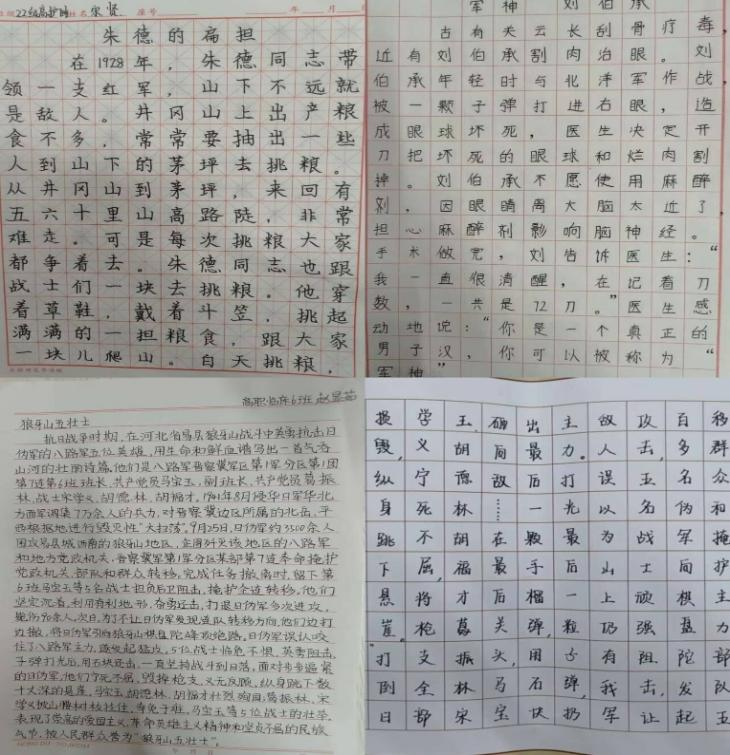 22级高护 姓名 宋贤 座号 年 月 日
朱德的扁担
在1928年,朱德同志带
领一支红军,山下不远就
是敌人。井冈山上出产粮
食不多,常常要抽出一些
人到山下的茅坪去挑粮。
从井冈山到茅坪,来回有
五六十里山高路陡,非常
难走。可是每次挑粮大家
都争着去。朱德同志也跟
战士们一块去挑粮。他穿
着草鞋,戴着斗笠,挑起
满满的一担粮食,跟大家
一块儿爬山。白天挑粮,
军神 刘伯承
古有关云长刮骨疗毒,
近有刘伯承割肉治眼。刘
伯承年轻时与北洋军作战,
被一颗子弹打进右眼,造
成眼球坏死,医生决定开
刀把坏死的眼球和烂肉割
掉。刘伯承不愿使用麻醉
剂,因眼睛周大脑太近了,
担心麻醉剂影响脑神经。
手术做完,刘告诉医生:“
我一直很清醒,在记着刀
数,一共是72刀。”医生感
动地说:“你是一个真正的
男子汉,你可以被称为“
军神”
高职·临床6班
狼牙山五壮士
抗日战争时期,在河北省易县狼牙山战斗中英勇抗击日
伪军的八路军五位英雄,用生命和鲜血谱写出一首气吞
山河的壮丽诗篇,他们是八路军晋察冀军区第1军分区第1团
第7连第6班班长、共产党员马宝玉,副班长、共产党员葛振
林,战士宋学义、胡德林、胡福才。1941年8月侵华日军华北
方面军调集7万余人的兵力,对晋察冀边区所属的北岳、平
西根据地进行毁灭性“大扫荡”。9月25日,日伪军约3500余人
围攻易县城西南的狼牙山地区,企图歼灭该地区的八路军
和地方党政机关。晋察冀军第1军分区某部第7连奉命掩护
党政机关、部队和群众转移。完成任务撤离时,留下第
6班马宝玉等5名战士担负后卫阻击,掩护全连转移。他们
坚定沉着,利用有利地形,奋勇还击,打退日伪军多次进攻,
毙伤90余人,次日,为了不让日伪军发现连队转移方向,他们边打
边撤,将日伪军引向狼牙山棋盘陀峰顶绝路。日伪军误认咬
住了八路军主力,遂发起猛攻。5位战士临危不惧,英勇阻击,
子弹打光后,用石块还击,一直坚持战斗到日落,面对步步逼紧
的日伪军,他们宁死不屈,毁掉枪支,义无反顾,纵身跳下数
十丈深的悬崖,马宝玉、胡德林、胡福才壮烈殉国;葛振林、宋
学义被山腰树枝挂住,幸免于难。马宝玉等5位战士的壮举,
表现了崇高的爱国主义、革命英雄主义精神和坚贞不屈的民族
气节,被人民群众誉为“狼牙山五壮士”。
移群众和掩护主力部队五
百多名伪军向棋盘陀发起
攻击,五名战士顽强阻击,让
敌人误以为山上仍有我军
主力。打光最后一粒子弹,扔
出最后一颗手榴弹,用石快
砸向敌……在最后关头,马宝
玉胡德林胡福才葛振林宋
学义宁死不屈,将枪支全部
损毁,纵身跳下悬崖。打倒日